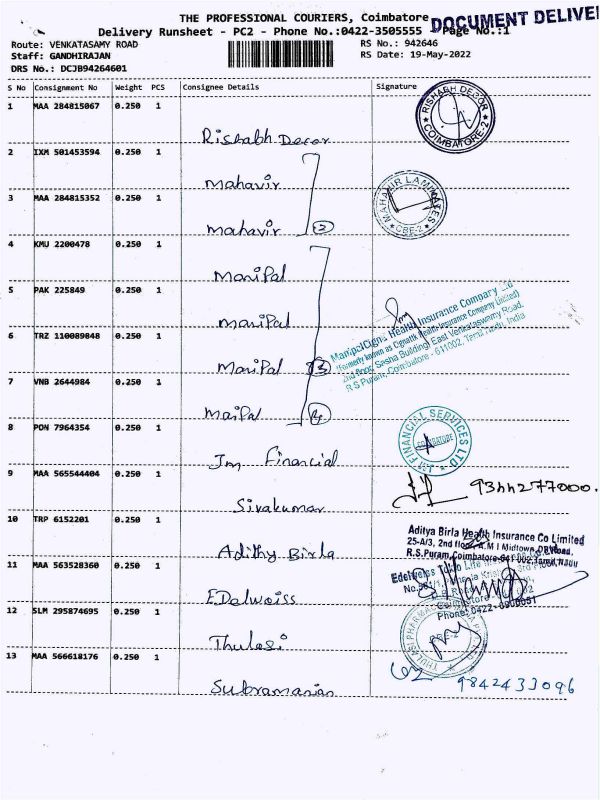 THE PROFESSIONAL COURIERS, Coimbatore
DOCUMENT DELIVE
Delivery Runsheet - PC2 - Phone No.:0422-3505555 - Page No.:1
Route: VENKATASAMY ROAD
RS No.: 942646
Staff: GANDHIRAJAN
RS Date: 19-May-2022
DRS No.: DCJB94264601
S No Consignment No Weight PCS Consignee Details Signature
1 MAA 284815067 0.250 1
RISHABH DECOR
COIMBATORE-2
Rishabh Decor
2 IXM 501453594 0.250 1
Mahavir
MAHAVIR LAMINATES
CBE-2
3 MAA 284815352 0.250 1
Mahavir 2
4 KMU 2200478 0.250 1
Manipal
5 PAK 225849 0.250 1
Manipal
ManipalCigna Health Insurance Company Ltd
(formerly known as CignaTTK Health Insurance Company Limited)
2nd floor, Sesha Building, East Venkataswamy Road,
R.S Puram, Coimbatore - 611002, Tamil Nadu, India
6 TRZ 110089848 0.250 1
Manipal
7 VNB 2644984 0.250 1
Maipal 4
8 PON 7964354 0.250 1
J.M FINANCIAL SERVICES LTD
COIMBATORE
Jm Financial
9 MAA 565544404 0.250 1
9344277000.
Sivakumar
10 TRP 6152201 0.250 1
Aditya Birla Health Insurance Co Limited
25-A/3, 2nd floor, A.M I Midtown, DB Road,
R.S.Puram, Coimbatore-641 002, Tamil Nadu
Adithy Birla
11 MAA 563528360 0.250 1
Edelweiss Tokio Life
Phone: 0422-
Edelweiss
12 SLM 295874695 0.250 1
THULASI PHARMA
CBE-2
Thulasi
13 MAA 566618176 0.250 1
9842433096
Subramanian